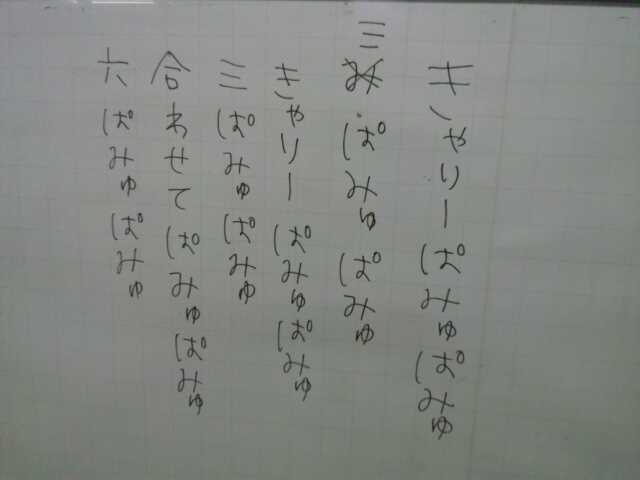 きゃりーぱみゅぱみゅ
三ぱみゅぱみゅ
きゃりーぱみゅぱみゅ
三ぱみゅぱみゅ
合わせてぱみゅぱみゅ
六ぱみゅぱみゅ